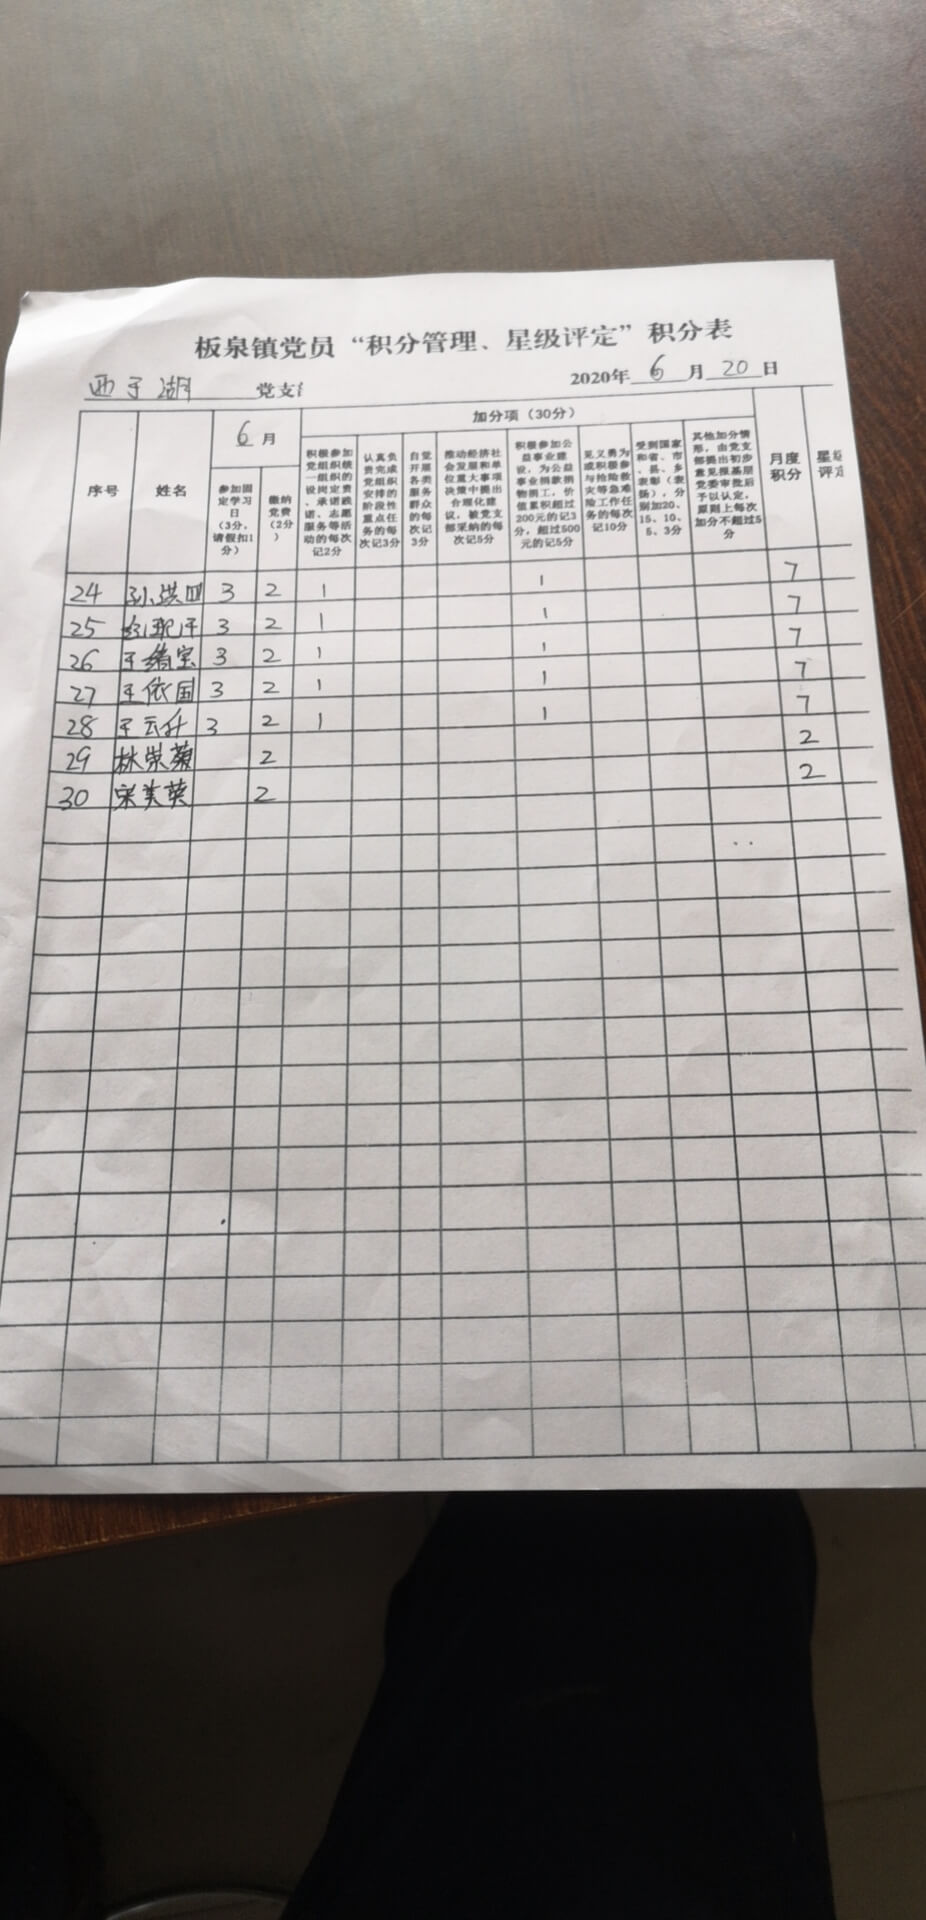 板泉镇党员“积分管理、星级评定”积分表
西于湖 党支
2020年 6 月 20 日
序号 姓名 6 月 加分项（30分） 月度积分 星级评定
参加固定学习日（3分，请假扣1分）
缴纳党费（2分）
积极参加党组织统一组织的设岗定责、承诺践诺、志愿服务等活动的每次记2分
认真负责完成党组织安排的阶段性重点任务的每次记3分
自觉开展各类服务群众的每次记3分
推动经济社会发展和单位重大事项决策中提出合理化建议，被党支部采纳的每次记5分
积极参加公益事业建设，为公益事业捐款捐物捐工，价值累积超过200元的记3分，超过500元的记5分
见义勇为或积极参与抢险救灾等急难险工作任务的每次记10分
受到国家和省、市、县、乡表彰（表扬），分别加20、15、10、5、3分
其他加分情形，由党支部提出初步意见报基层党委审批后予以认定，原则上每次加分不超过5分
24 孙洪四 3 2 1 1 7
25 3 2 1 1 7
26 王绪宝 3 2 1 1 7
27 王依国 3 2 1 1 7
28 王云升 3 2 1 1 7
29 林崇菊 2 2
30 宋美英 2 2